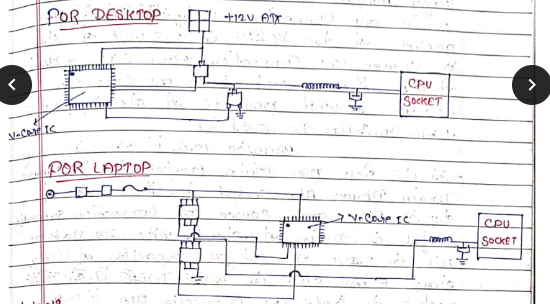 FOR DESKTOP
+12V ATX
CPU
SOCKET
V-Core IC
FOR LAPTOP
V-Core IC
CPU
SOCKET